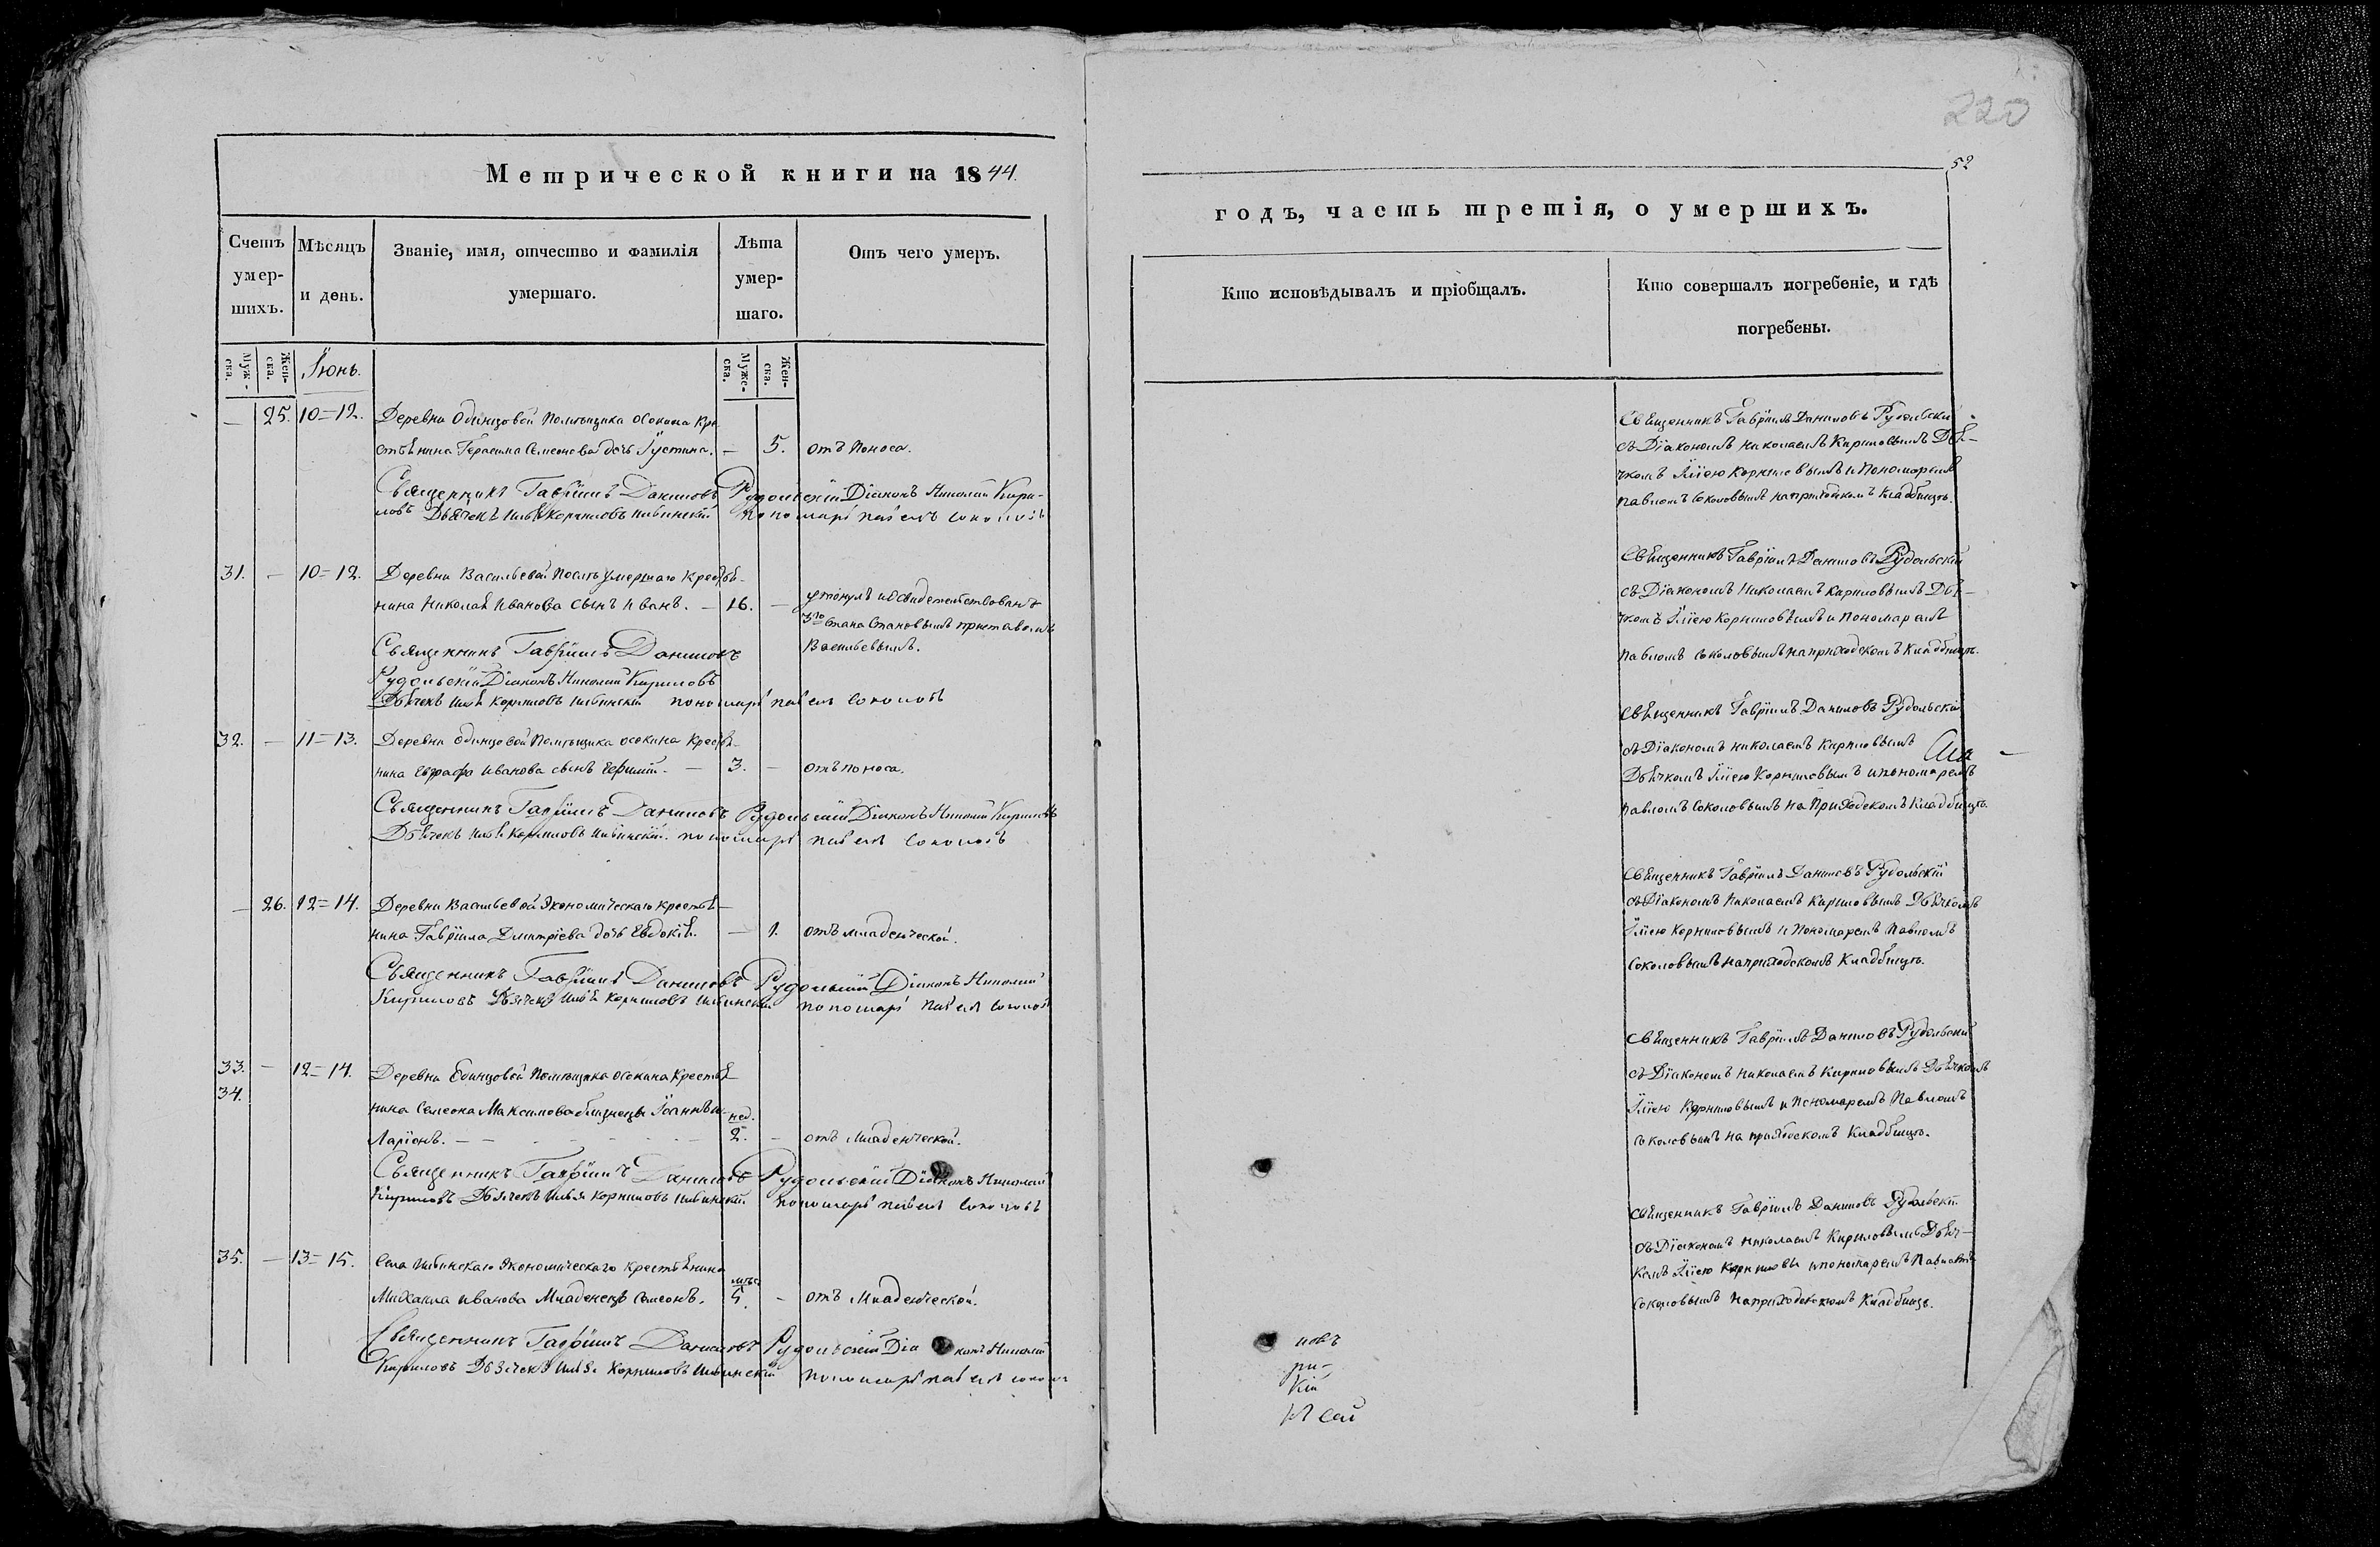 220
52
Метрической книги на 1844.
годъ, часть третія, о умершихъ.
Счетъ умер-шихъ.
Мѣсяцъ и день.
Званіе, имя, отчество и фамилія умершаго.
Лѣта умер-шаго.
Отъ чего умеръ.
Кто исповѣдывалъ и пріобщалъ.
Кто совершалъ погребеніе, и гдѣ погребены.
Муж-ска.
Жен-ска.
Іюнь.
Муже-ска.
Жен-ска.
— 25. 10=12. Деревни Одинцовой Помѣщика Осокина Кре
стьѧнина Герасима Семенова дочь Іустина. — 5. отъ поноса.
Свѧщенникъ Гавріилъ Даниловъ Рудольскій Діаконъ Николай Кири-
ловъ Дьѧчекъ Ильѧ Корниловъ Ильинскій Пономарь Павелъ Соколовъ
Свѧщенникъ Гавріилъ Даниловъ Рудольскій
съ Діакономъ Николаемъ Кириловымъ Дьѧ-
чкомъ Иліею Корниловымъ и Пономаремъ
Павломъ Соколовымъ на приходскомъ Кладбищѣ.
31. — 10=12. Деревни Васильевой умершаго Крестьѧ-
нина Николаѧ Иванова сынъ Иванъ. — 16. — утонулъ и освидетельствованъ
3го Стана Становымъ приставомъ
Васильевымъ.
Свѧщенникъ Гавріилъ Даниловъ
Рудольскій Діаконъ Николай Кириловъ
Дьѧчекъ Ильѧ Корниловъ Ильинскій пономарь павелъ Соколовъ
Свѧщенникъ Гавріилъ Даниловъ Рудольскій
съ Діакономъ Николаемъ Кириловымъ Дьѧ-
чкомъ Иліею Корниловымъ и Пономаремъ
Павломъ Соколовымъ на приходскомъ Кладбищѣ.
32. — 11=13. Деревни Одинцовой Помѣщика Осокина Крестьѧ-
нина Евграфа Иванова сынъ — 3. — отъ поноса.
Свѧщенникъ Гавріилъ Даниловъ Рудольскій Діаконъ Николай Кириловъ
Дьѧчекъ Ильѧ Корниловъ Ильинскій. пономарь павелъ Соколовъ
Свѧщенникъ Гавріилъ Даниловъ Рудольскій
съ Діакономъ Николаемъ Кириловымъ
Дьѧчкомъ Иліею Корниловымъ и пономаремъ
Павломъ Соколовымъ на Приходскомъ Кладбищѣ.
— 26. 12=14. Деревни Васильевой Экономическаго Крестьѧ-
нина Гавріила Дмитріева дочь Евдокіѧ. — 1. отъ младенческой.
Свѧщенникъ Гавріилъ Даниловъ Рудольскій Діаконъ Николай
Кириловъ Дьѧчекъ Илья Корниловъ Ильинскій пономарь павелъ Соколовъ
Свѧщенникъ Гавріилъ Даниловъ Рудольскій
съ Діакономъ Николаемъ Кириловымъ Дьѧчкомъ
Иліею Корниловымъ и Пономаремъ Павломъ
Соколовымъ на приходскомъ Кладбищѣ.
33. — 12=14. Деревни Единцовой Помѣщика Осокина Крестьѧ-
34.
нина Семеона Максимова близнецы Іоаннъ и нед.
Ларіонъ. — 2. — отъ младенческой.
Свѧщенникъ Гавріилъ Даниловъ Рудольскій Діаконъ Николай
Кириловъ Дьячекъ Илья Корниловъ Ильинскій. пономарь павелъ Соколовъ
Свѧщенникъ Гавріилъ Даниловъ Рудольскій
съ Діакономъ Николаемъ Кириловымъ Дьѧчкомъ
Иліею Корниловымъ и Пономаремъ Павломъ
Соколовымъ на приходскомъ Кладбищѣ.
35. — 13=15. Села Ильинскаго Экономическаго Крестьѧнина
Михаила Иванова Младенецъ Семеонъ. мѣс. 5. — отъ Младенческой.
Свѧщенникъ Гавріилъ Даниловъ Рудольскій Діаконъ Николай
Кириловъ Дьѧчекъ Илья Корниловъ Ильинскій пономарь павелъ
Свѧщенникъ Гавріилъ Даниловъ Рудольскій
съ Діакономъ Николаемъ Кириловымъ Дьѧч-
комъ Иліею Корниловы и пономаремъ Павломъ
Соколовымъ на приходскомъ Кладбищѣ.
ловъ
ри-
кій